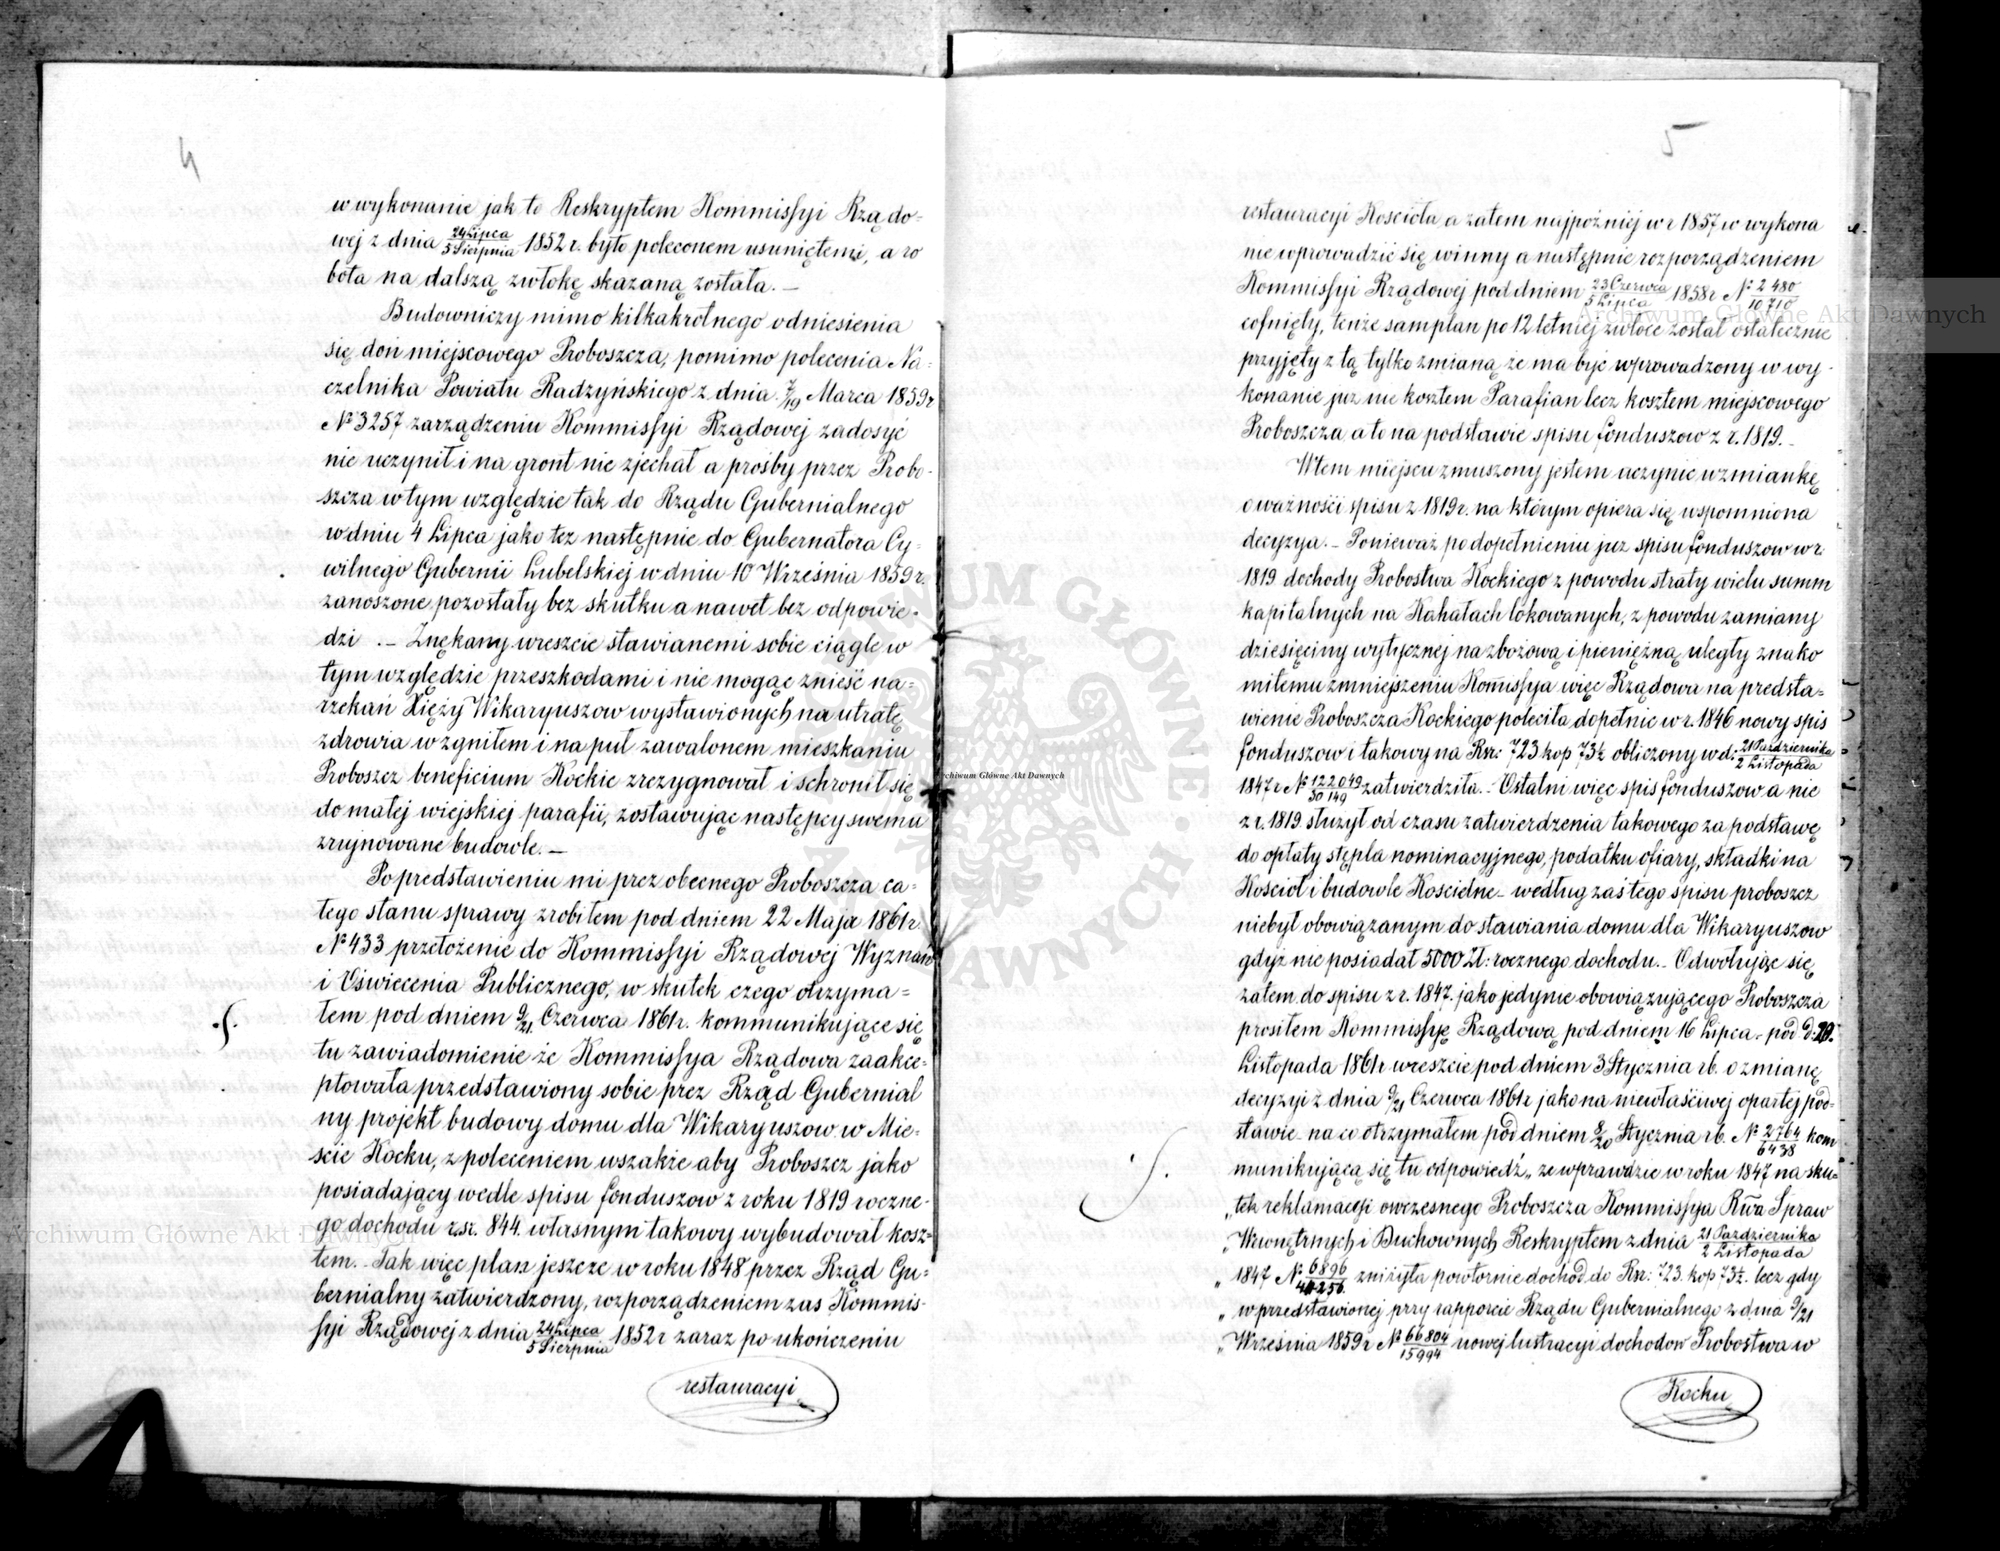 4
w wykonanie jak to Reskryptem Kommissyi Rządo-
wej z dnia 24 Lipca/5 Sierpnia 1852 r. było poleconem usuniętemi, a ro
bota na dalszą zwłokę skazaną została. —
Budowniczy mimo kilkakrotnego odniesienia
się doń miejscowego Proboszcza, pomimo polecenia Na-
czelnika Powiatu Radzyńskiego z dnia 7/19 Marca 1859 r
№ 3257 zarządzeniu Kommissyi Rządowej zadosyć
nie uczynił i na gront nie zjechał a prośby przez Probo-
szcza w tym względzie tak do Rządu Gubernialnego
w dniu 4 Lipca jako tez następnie do Gubernatora Cy-
wilnego Gubernii Lubelskiej w dniu 10 Września 1859 r.
zanoszone pozostały bez skutku a nawet bez odpowie-
dzi. — Znękany wreszcie stawianemi sobie ciągle w
tym względzie przeszkodami i nie mogąc znieść na-
rzekań Xięży Wikaryuszow wystawionych na utratę
zdrowia w zgniłem i na puł zawalonem mieszkaniu
Proboszcz beneficium Kockie zrezygnował i schronił się
do małej wiejskiej parafii, zostawując następcy swemu
zrujnowane budowle. —
Po predstawieniu mi prez obecnego Proboszcza ca-
łego stanu sprawy zrobiłem pod dniem 22 Maja 1861 r.
№ 433 przełożenie do Kommissyi Rządowej Wyznań
i Oświecenia Publicznego, w skutek czego otrzyma=
łem pod dniem 9/21 Czerwca 1861 r. kommunikujące się
tu zawiadomienie że Kommissya Rządowa zaakce-
ptowała przedstawiony sobie prez Rząd Gubernial
ny projekt budowy domu dla Wikaryuszow w Mie-
ście Kocku, z poleceniem wszakże aby Proboszcz jako
posiadający wedle spisu fonduszow z roku 1819 roczne-
go dochodu r.sr. 844. własnym takowy wybudował kosz-
tem. — Tak więc plan jeszcze w roku 1848 przez Rząd Gu-
bernialny zatwierdzony, rozporządzeniem zas Kommis-
syi Rządowej z dnia 24 Lipca/5 Sierpnia 1852 r zaraz po ukończeniu
restauracyi
5
restauracyi Kościoła a zatem najpóźniej w r 1857 w wykona
nie wprowadzić się winny a następnie rozporządzeniem
Kommissyi Rządowej pod dniem 23 Czerwca/5 Lipca 1858 r № 2480/10710
cofnięty, tenże sam plan po 12 letniej zwłoce został ostatecznie
przyjęty z tą tylko zmianą że ma być wprowadzony w wy-
konanie juz nie kosztem Parafian lecz kosztem miejscowego
Proboszcza a to na podstawie spisu fonduszow z r. 1819. —
W tem miejscu zmuszony jestem uczynić wzmiankę
o ważności spisu z 1819 r. na którym opiera się wspomniona
decyzya. — Ponieważ po dopełnieniu juz spisu fonduszow w r.
1819 dochody Probostwa Kockiego z powodu straty wielu summ
kapitalnych na Kahałach lokowanych, z powodu zamiany
dziesięciny wytycznej na zbożową i pieniężną uległy znako
mitemu zmniejszeniu Kommissya więc Rządowa na predsta=
wienie Proboszcza Kockiego poleciła dopełnic w r. 1846 nowy spis
fonduszow i takowy na Rsr: 723 kop 73½ obliczony w d. 21 Października/2 Listopada
1847 r № 122049/30149 zatwierdziła. — Ostatni więc spis fonduszow a nie
z r. 1819 służył od czasu zatwierdzenia takowego za podstawę
do opłaty stępla nominacyjnego, podatku ofiary, składki na
Kościoł i budowle Koscielne — według zaś tego spisu proboszcz
niebył obowiązanym do stawiania domu dla Wikaryuszow
gdyż nie posiadał 5000 Zł: rocznego dochodu. — Odwołując się
zatem do spisu z r. 1847. jako jedynie obowiązującego Proboszcza
prosiłem Kommissyę Rządową pod dniem 16 Lipca — pod d: 20.
Listopada 1861 r wreszcie pod dniem 3 Stycznia rb. o zmianę
decyzyi z dnia 9/21 Czerwca 1861 r jako na niewłaściwej opartej pod-
stawie — na co otrzymałem pod dniem 8/20 Stycznia rb. № 2764/6438 kom
munikującą się tu odpowiedź „ ze wprawdzie w roku 1847 na sku-
„ tek reklamacyi owczesnego Proboszcza Kommissya Rwa Spraw
„ Wewnętrznych i Duchownych Reskryptem z dnia 21 Października/2 Listopada
„ 1847 № 6896/41256 zniżyła powtornie dochod do Rsr: 723. kop 73½. lecz gdy
„ w przedstawionej przy rapporcie Rządu Gubernialnego z dnia 9/21
„ Września 1859 r № 66804/15994 nowej lustracyi dochodow Probostwa w
Kocku
Archiwum Główne Akt Dawnych
Archiwum Główne Akt Dawnych
Archiwum Główne Akt Dawnych
ARCHIWUM GŁÓWNE AKT DAWNYCH